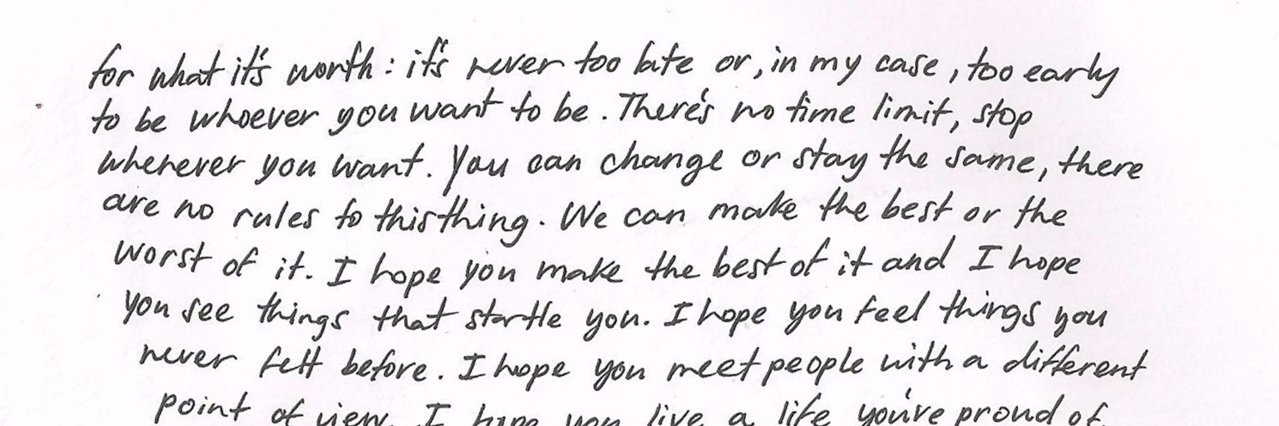 for what it's worth: it's never too late or, in my case, too early
to be whoever you want to be. There's no time limit, stop
whenever you want. You can change or stay the same, there
are no rules to this thing. We can make the best or the
worst of it. I hope you make the best of it and I hope
you see things that startle you. I hope you feel things you
never felt before. I hope you meet people with a different
point of view. I hope you live a life you're proud of.